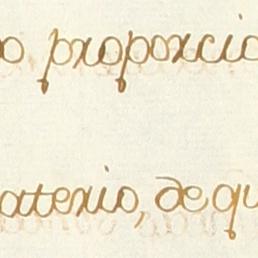 o proporcio
aterio, de qu